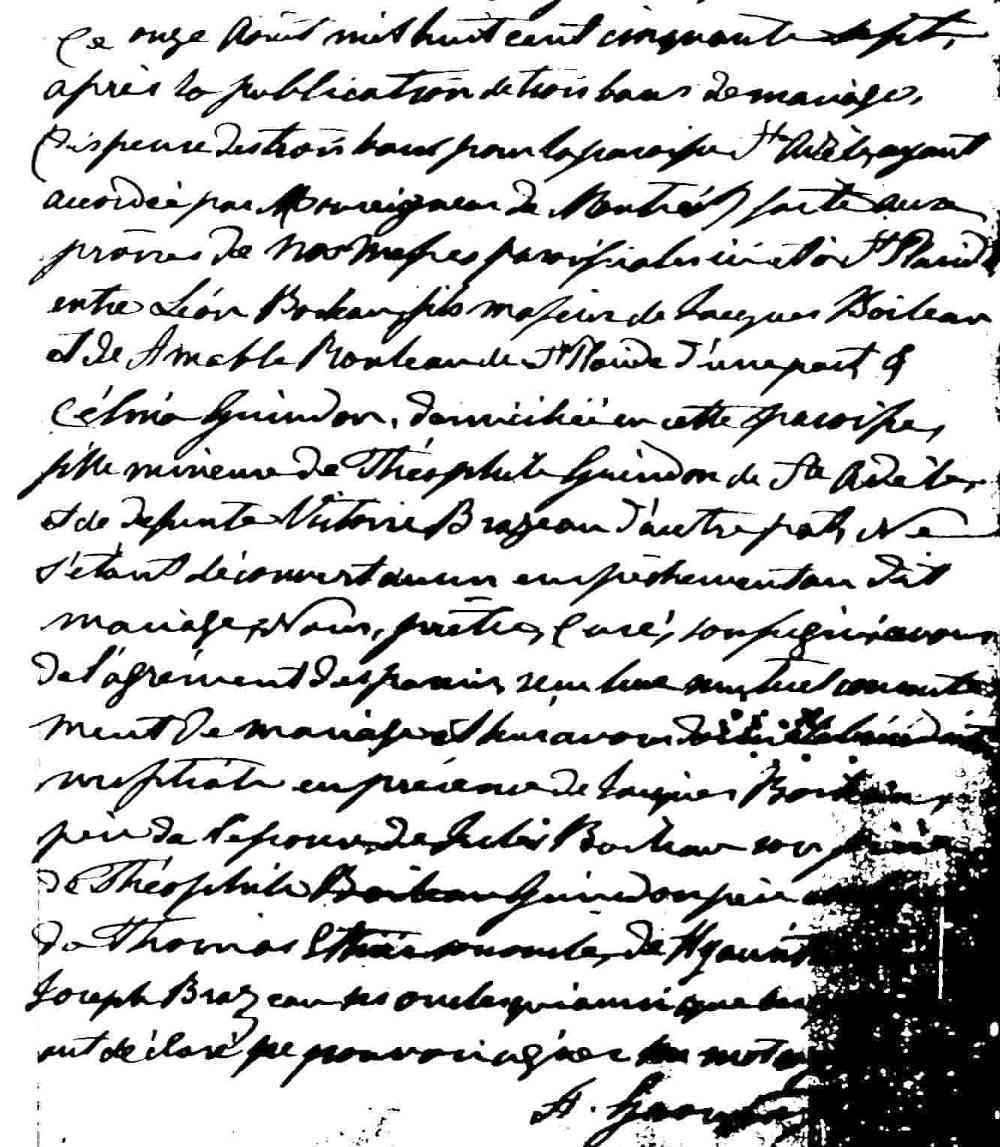 Ce onze Août mil huit cent cinquante sept,
après la publication de trois bans de mariage,
Dispense des trois bans pour la paroisse Ste Adèle, ayant
accordée par Monseigneur de Montréal faite aux
prônes de nos Messes paroissiales ici et à St Placide
entre Léon Boileau, fils majeur de Jacques Boileau
et de Amable Rouleau de St Placide d'une part &
Célina Guindon, domiciliée en cette paroisse,
fille mineure de Théophile Guindon de Ste Adèle,
et de defunte Victoire Brazeau d'autre part, Ne
s'étant découvert aucun empêchement au dit
mariage, Nous, prêtre, Curé, soussigné, avons
de l'agrément des parens, reçu leur mutuel consente
ment de mariage & leur avons donné la bénédiction
nuptiale en présence de Jacques Boileau,
père de l'époux, de Jules Boileau son frère
de Théophile Boileau Guindon père
de Thomas son oncle, de Hyacinthe
Joseph Brazeau ses oncles qui ainsi que les
ont déclaré ne pouvoir signer